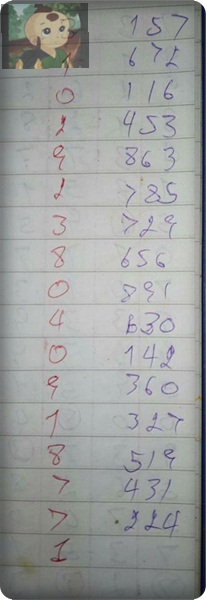 157
672
0 116
2 453
9 863
2 785
3 729
8 656
0 891
4 630
0 142
9 360
1 327
8 519
7 431
7 224
1